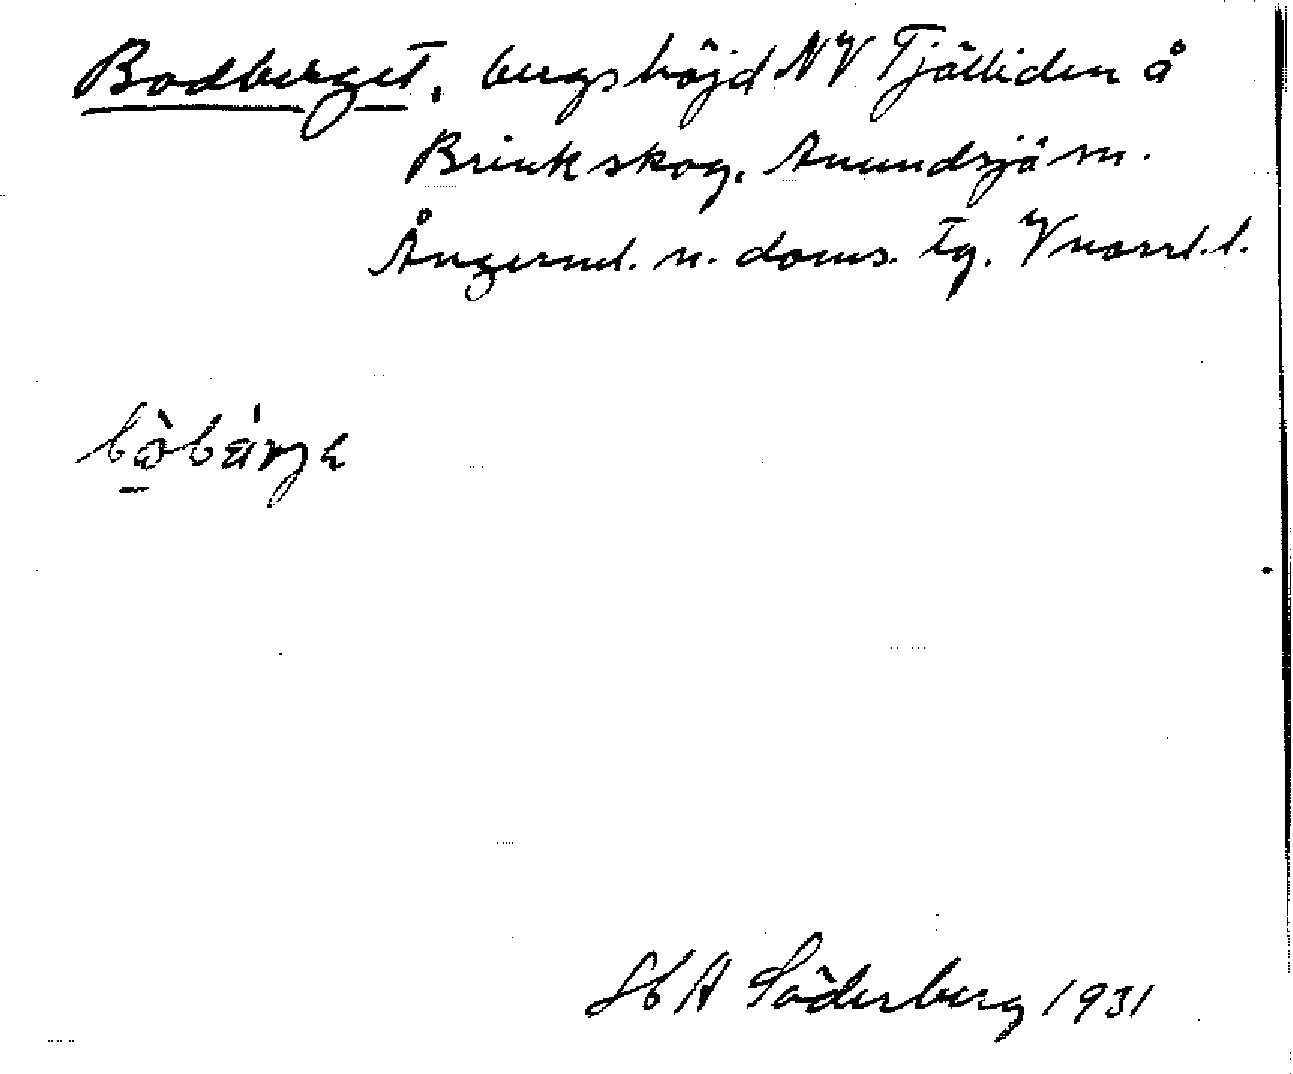 Bodberget, bergshöjd NV Tjälliden å
Brink skog, Anundsjö sn.
Ångerml. n. doms. tg. Vnorrl. l.
bòbä́rjə
H A Söderberg 1931